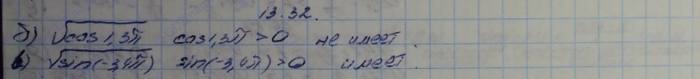 13.32.
б) √cos1,3π cos1,3π > 0 не имеет.
в) √sin(-3,4π) sin(-3,4π) > 0 имеет.